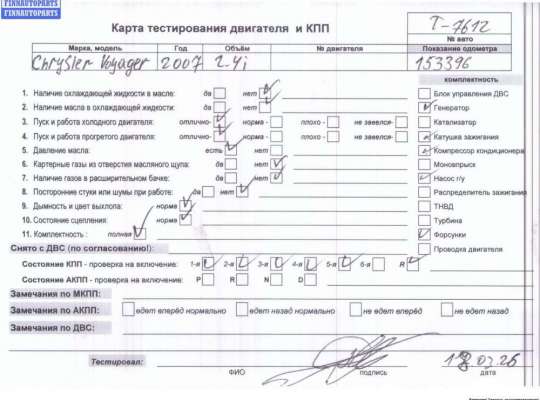 FINNAUTOPARTS
FINNAUTOPARTS
Карта тестирования двигателя и КПП
Т-7612
№ авто
Марка, модель Год Объём № двигателя Показание одометра
Chrysler Voyager 2007 2.4i 153396
комплектность
1. Наличие охлаждающей жидкости в масле: да нет Блок управления ДВС
2. Наличие масла в охлаждающей жидкости: да нет Генератор
3. Пуск и работа холодного двигателя: отлично- норма - плохо - не завелся- Катализатор
4. Пуск и работа прогретого двигателя: отлично- норма - плохо - не завелся- Катушка зажигания
5. Давление масла: есть нет Компрессор кондиционера
6. Картерные газы из отверстия масляного щупа: да нет Моновпрыск
7. Наличие газов в расширительном бачке: да нет Насос г/у
8. Посторонние стуки или шумы при работе: да нет Распределитель зажигания
9. Дымность и цвет выхлопа: норма ТНВД
10. Состояние сцепления: норма Турбина
11. Комплектность : полная Форсунки
Снято с ДВС (по согласованию!): Проводка двигателя
Состояние КПП - проверка на включение: 1-я 2-я 3-я 4-я 5-я 6-я R
Состояние АКПП - проверка на включение: P R N D
Замечания по МКПП:
Замечания по АКПП: едет вперёд нормально едет назад нормально не едет вперёд не едет назад
Замечания по ДВС:
Тестировал:
ФИО подпись дата